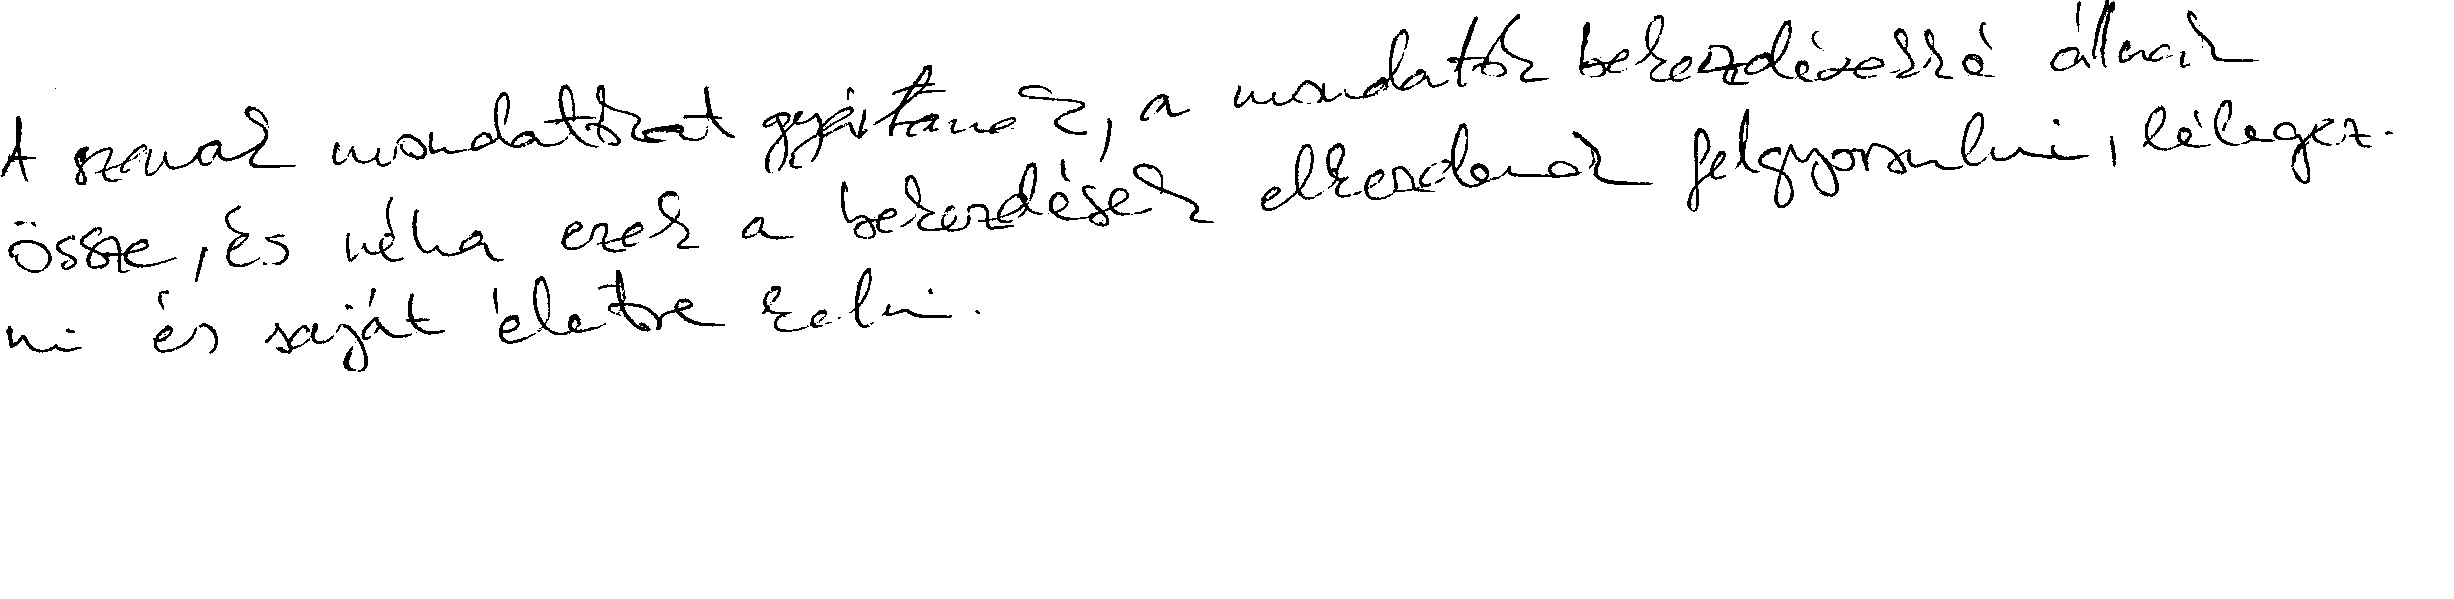 A szavak mondatokat gyártanak, a mondatok bekezdésekké állnak
össze, és néha ezek a bekezdések elkezdenek felgyorsulni, lélegez-
ni és saját életre kelni.